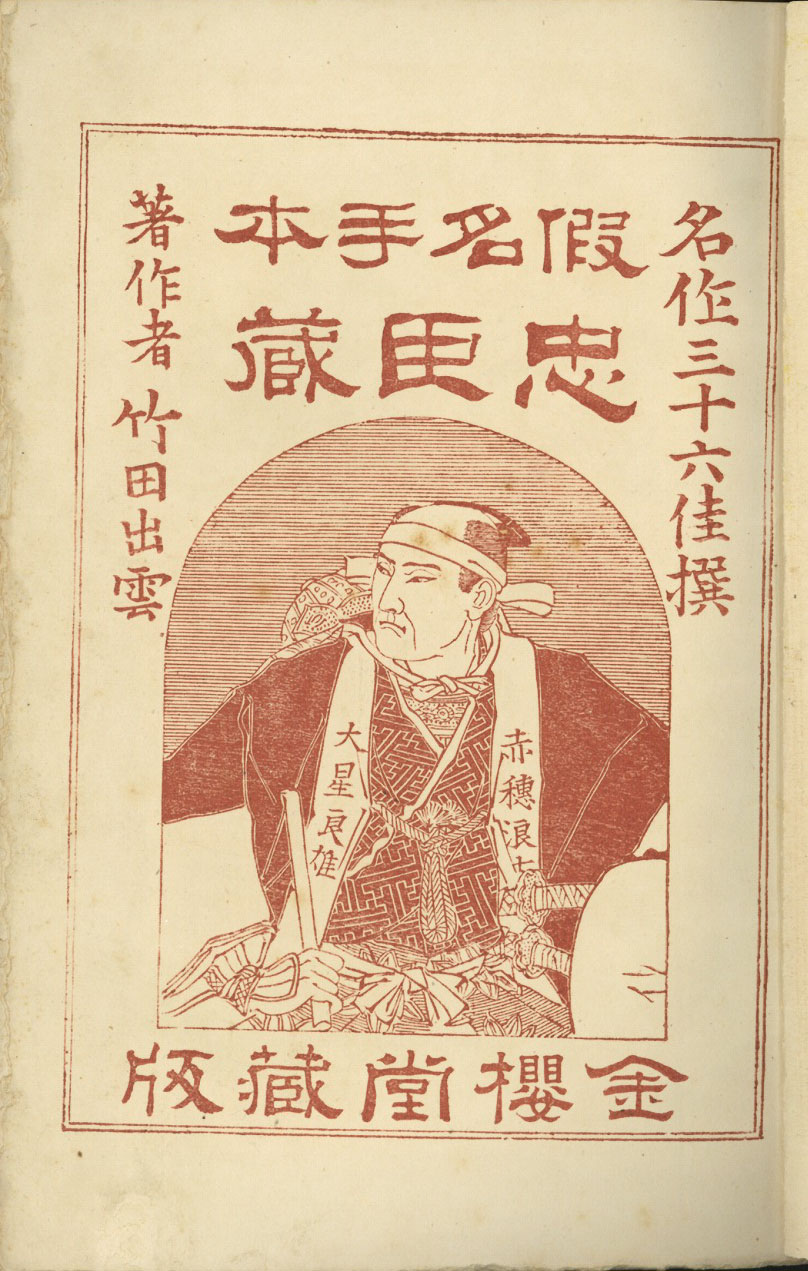 名作三十六佳撰
假名手本
忠臣藏
著作者 竹田出雲
赤穗浪士
大星良雄
金櫻堂藏版